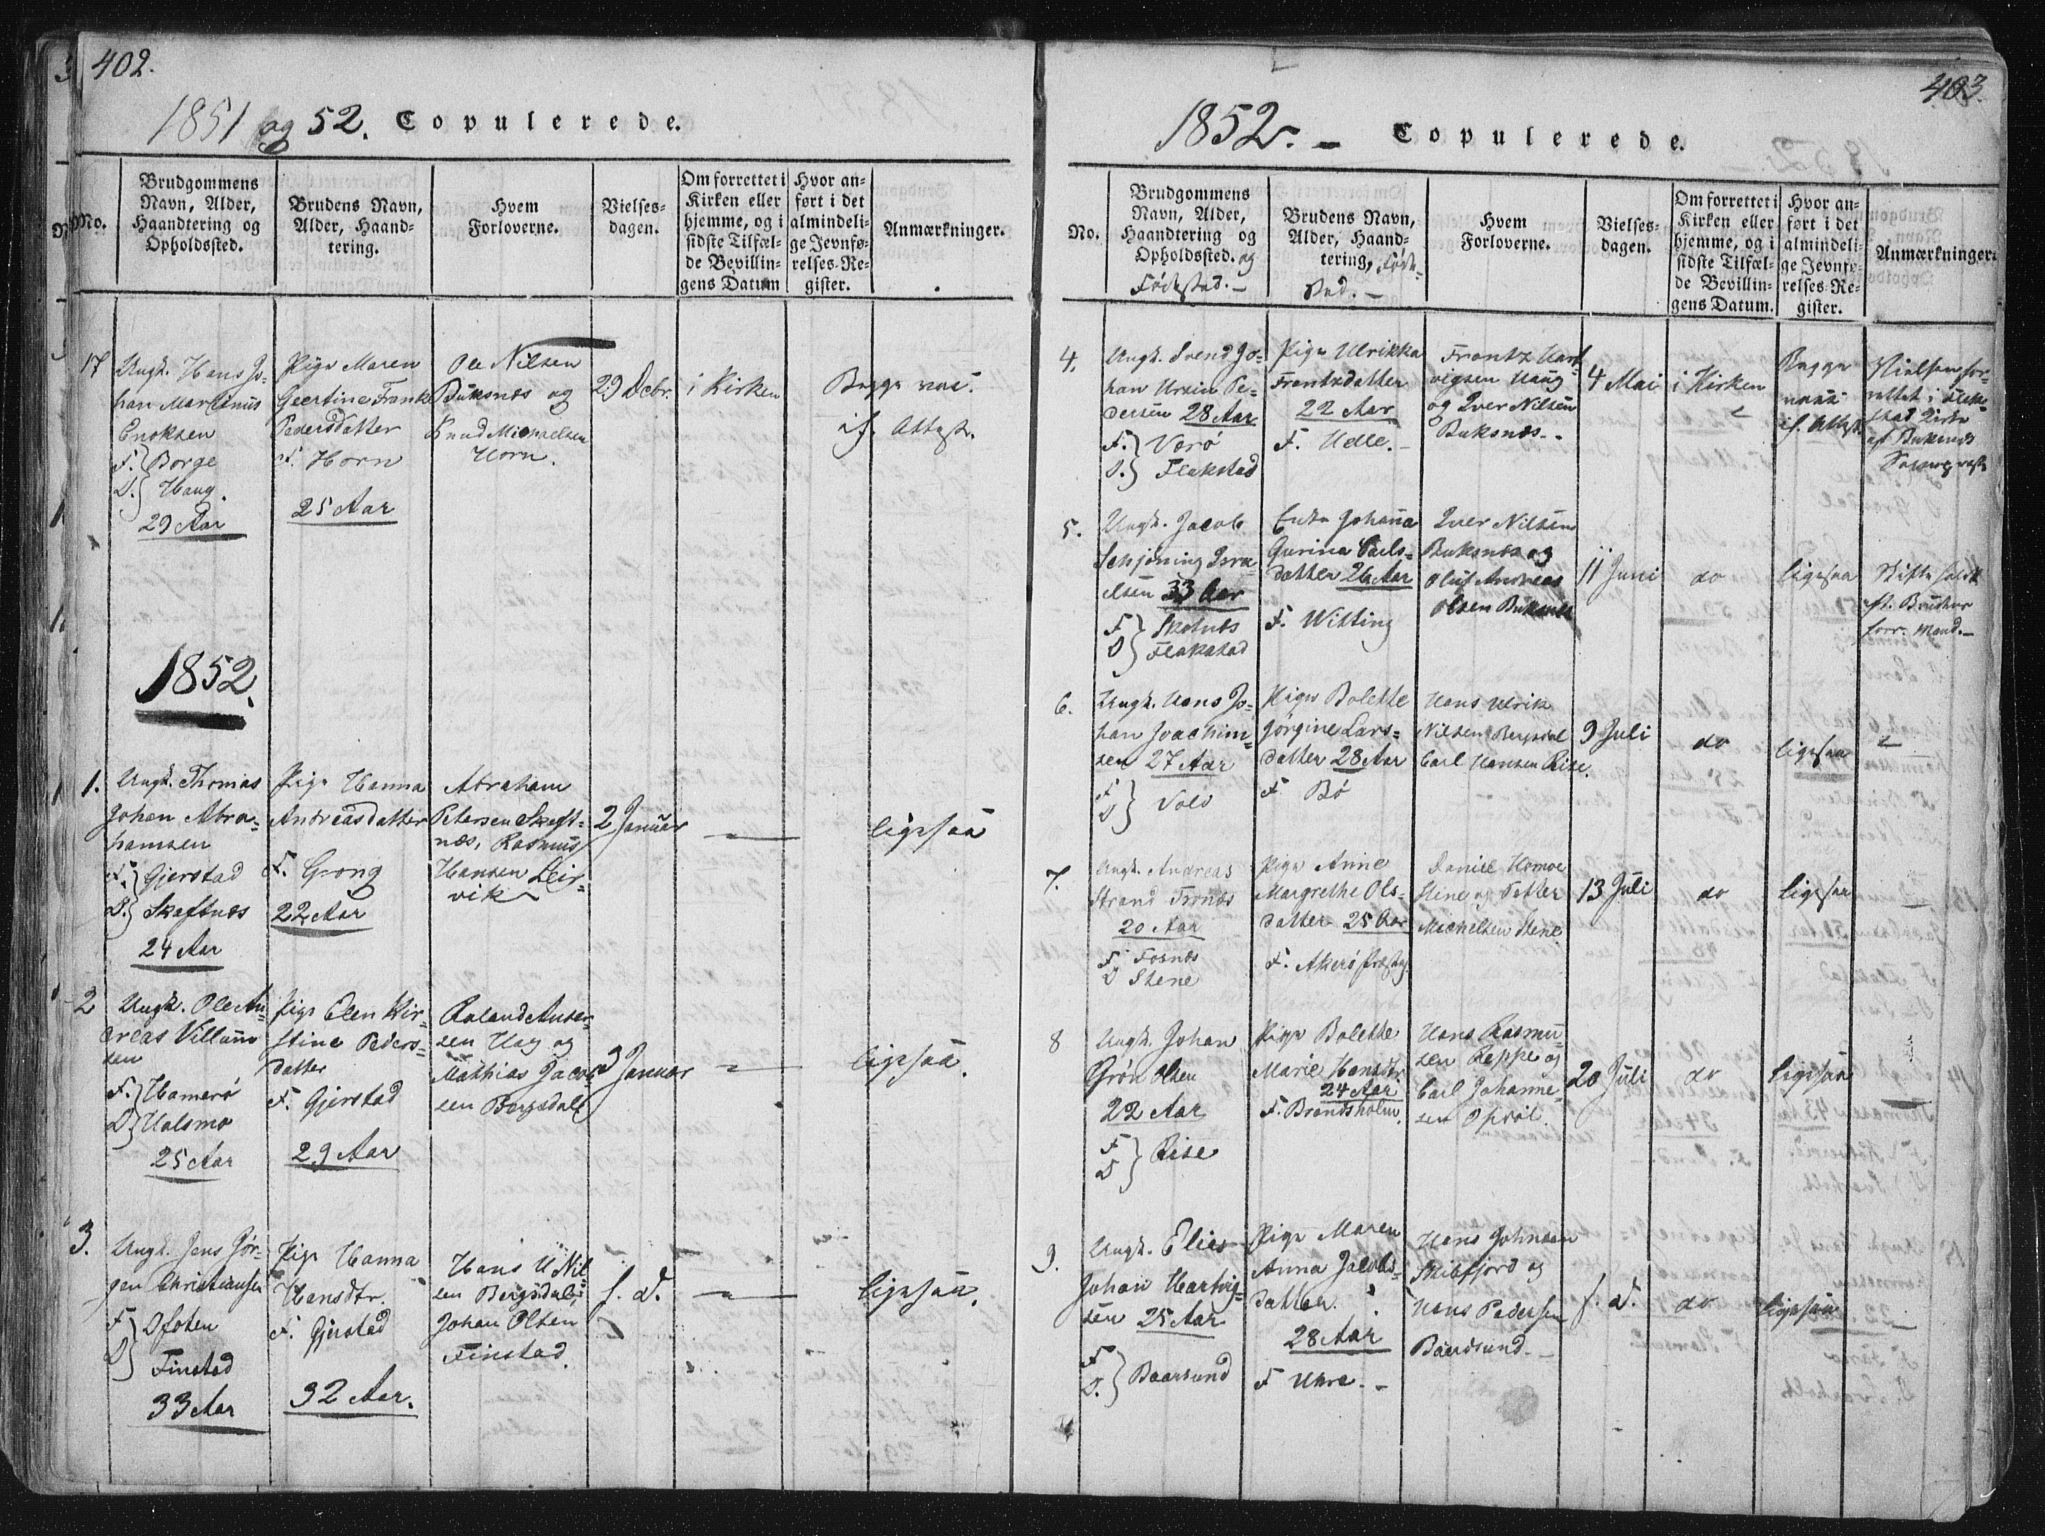 402.
1851 og 52. Copulerede.
No.
Brudgommens
Navn, Alder,
Haandtering og
Opholdssted.
Brudens Navn,
Alder, Haand-
tering.
Hvem
Forloverne.
Vielses-
dagen.
Om forrettet i
Kirken eller
hjemme, og i
sidste Tilfæl-
de Bevillin-
gens Datum
Hvor an-
ført i det
almindeli-
ge Jevnfø-
relses-Re-
gister.
Anmærkninger.
17
Ungk. Hans Jo-
han Martinus
Enoksen
F. } Borge
O. } Haug.
29 Aar
Pige Maren
Geertine Frank
Pedersdatter
F. Horn
25 Aar
Ole Nilsen
Buksnæs og
Knud Michaelsen
Horn.
29 Debr.
i Kirken
Begge vac.
if. Attest.
1852.
1.
Ungk. Thomas
Johan Abra-
hamsen
F. } Gjerstad
O. } Skaftnæs
24 Aar
Pige Hanna
Andreasdatter
F. Grong
22 Aar
Abraham
Petersen Skaft-
næs, Rasmus
Hansen Leir-
vik
2 Januar
ligesaa
2
Ungk. Ole An-
dreas Villum
sen
F. } Hamerø
O. } Halsmo
25 Aar
Pige Elen Kir-
stine Peders-
datter
F. Gjerstad
29 Aar
Roland Anser-
sen Hag og
Mathias Jacob
sen Bergsdal
3 Januar
ligesaa.
3.
Ungk. Jens Jør-
gen Christiansen
F } Ofoten
O }
Finstad
33 Aar
Pige Hanna
Hansdtr.
F. Gjerstad
32 Aar.
Hans U Nil
sen Bergsdal,
Johan Olsen
Finstad.
s. D.
ligesaa.
403.
1852. - Copulerede.
No.
Brudgommens
Navn, Alder,
Haandtering og
Opholdssted. og
Fødested. -
Brudens Navn,
Alder, Haand-
tering, Føde-
sted. -
Hvem
Forloverne.
Vielses-
dagen.
Om forrettet i
Kirken eller
hjemme, og i
sidste Tilfæl-
de Bevillin-
gens Datum.
Hvor an-
ført i det
almindeli-
ge Jevnfø-
relses-Re-
gister.
Anmærkninger.
4.
Ungk. Svend Jo-
han Ursin Pe-
dersen 28 Aar
F. } Verø
O. } Flakstad
Pige Ulrikka
Frantzdatter
22 Aar
F. Udle. -
Frantz Hart
vigsen Haug
og Iver Nilsen
Buksnæs. -
4 Mai
i Kirken
Begge
vacc
if. Attest.
Vielsen for-
rettet i Flak-
stad Kirke
af Buksnæs
5.
Ungk. Jacob
Schjøning Isra-
elsen 33 Aar
F } Skotnæs
O } Flakstad
Enke Johana
Gurina Poels-
datter 26 Aar
F. Witting
Iver Nilsen
Buksnæs og
Oluf Andreas
Olsen Buksnæs
11 Juni
do
ligesaa
Skifte holdt
ft. Brudens
forr. Mand. -
6.
Ungk. Hans Jo-
han Joachim-
sen 27 Aar
F }
O } Volo
Pige Bolette
Jørgine Lars-
datter 28 Aar
F. Bø
Hans Ulrik
Nilsen Bergsdal
Carl Hansen Rise.
9 Juli
do
ligesaa
7.
Ungk. Andreas
Strand Fosnæs
20 Aar
F. Fosnæs
O Stene
Pige Anne
Margrethe Ols-
datter 25 Aar
F. Akerø Præstgj.
Daniel Homoe
Stene og Petter
Michelsen Stene
13 Juli
do
ligesaa
8
Ungk. Johan
Grøn Olsen
22 Aar
F }
O } Rise
Pige Bolette
Marie Hansdtr
24 Aar
F. Brandsholm.
Hans Rasmu-
sen Reppe og
Carl Johanne-
sen Opdøl.
20 Juli
do
ligesaa
9.
Ungk. Elias
Johan Hartvig-
sen 25 Aar
F }
O. } Baarsund
Pige Maren
Anna Jacobs-
datter.
28 Aar
F Uhre. -
Hans Johnsen
Skibfjord og
Hans Pedersen
Baardsund. -
s. D.
do
ligesaa